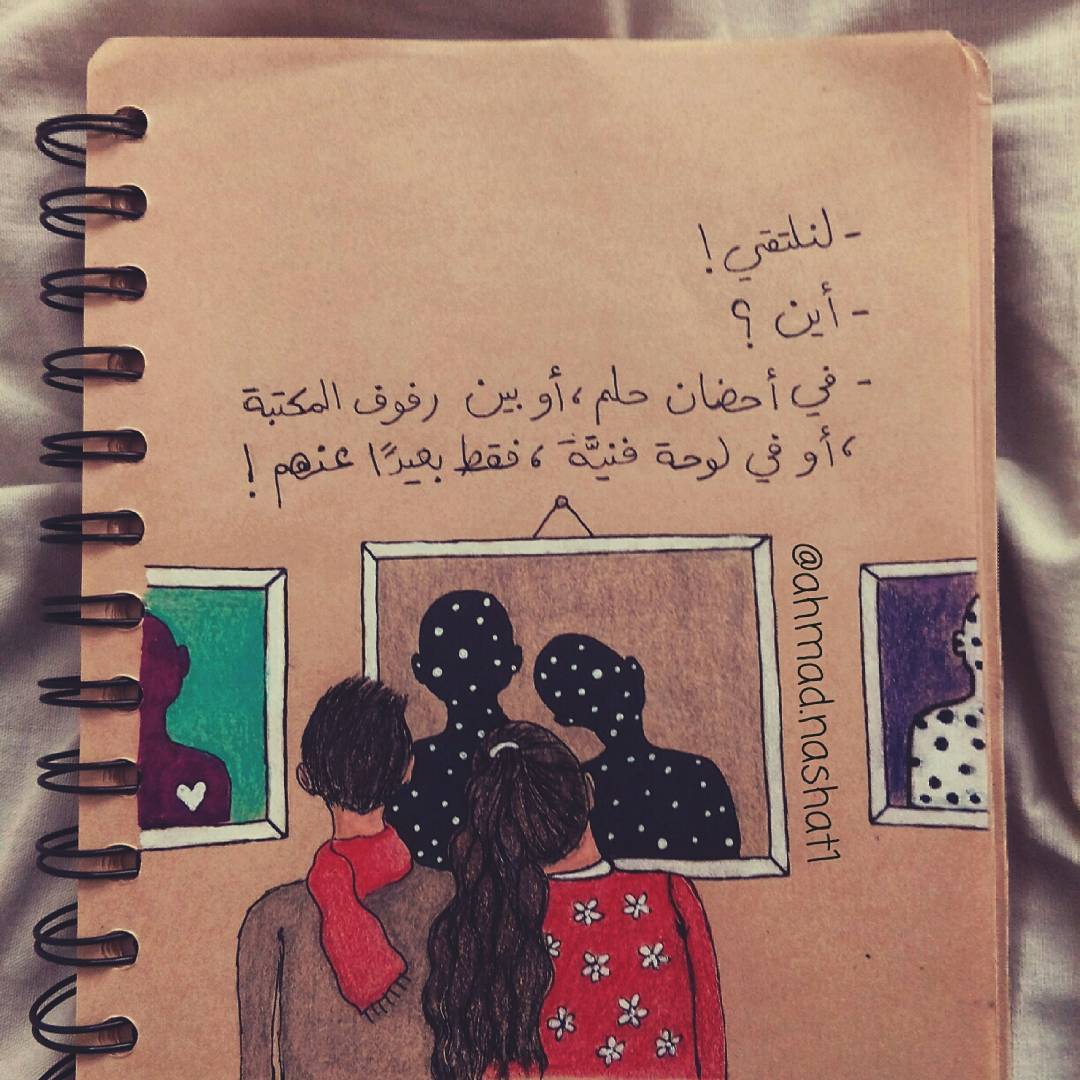 - لنلتقي !
- أين ؟
- في أحضان حلم ، أو بين رفوف المكتبة
، أو في لوحة فنيَّة ، فقط بعيدًا عنهم !
@ahmad.nashat1